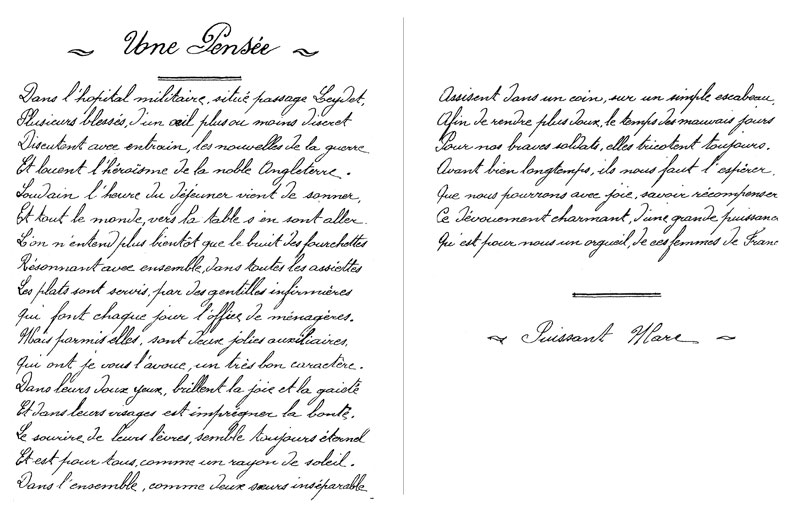 Une Pensée
Dans l'hopital militaire, situé passage Leydet,
Plusieurs blessés, d'un œil plus ou moins discret
Discutent avec entrain, les nouvelles de la guerre
Et louent l'héroïsme de la noble Angleterre.
Soudain l'heure du déjeuner vient de sonner,
Et tout le monde, vers la table s'en sont aller.
L'on n'entend plus bientot que le buit des fourchettes
Résonnant avec ensemble, dans toutes les assiettes
Les plats sont servis, par des gentilles infirmières
qui font chaque jour l'office de ménagères.
Mais parmis elles, sont deux jolies auxiliaires,
qui ont je vous l'avoue, un très bon caractère.
Dans leurs doux yeux, brillent la joie et la gaieté
Et dans leurs visages est imprégner la bonté.
Le sourire, de leurs lèvres, semble toujours éternel
Et est pour tous, comme un rayon de soleil.
Dans l'ensemble, comme deux sœurs inséparable
Assisent dans un coin, sur un simple escabeau,
Afin de rendre plus doux, le temps des mauvais jours
Pour nos braves soldats, elles tricotent toujours.
Avant bien longtemps, ils nous faut l'espérer
Que nous pourrons avec joie, savoir récompenser
Ce dévouement charmant, d'une grande puissanc
Qui est pour nous un orgueil, de ces femmes de Franc
Puissant Marc